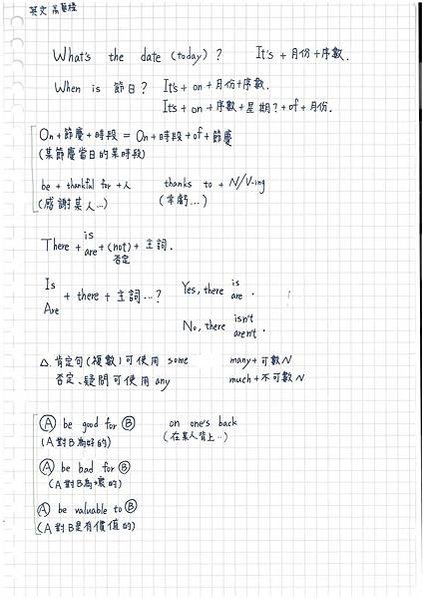 英文
What's the date (today)? It's + 月份 + 序數.
When is 節日? It's + on + 月份 + 序數.
It's + on + 序數 + 星期? + of + 月份.
On + 節慶 + 時段 = On + 時段 + of + 節慶
(某節慶當日的某時段)
be + thankful for + 人 thanks to + N/V-ing
(感謝某人...) (幸虧...)
There + is/are + (not) + 主詞.
否定
Is/Are + there + 主詞...? Yes, there is/are.
No, there isn't/aren't.
△. 肯定句(複數)可使用 some many + 可數N
否定、疑問可使用 any much + 不可數N
Ⓐ be good for Ⓑ on one's back
(A對B為好的) (在某人背上..)
Ⓐ be bad for Ⓑ
(A對B為壞的)
Ⓐ be valuable to Ⓑ
(A對B是有價值的)